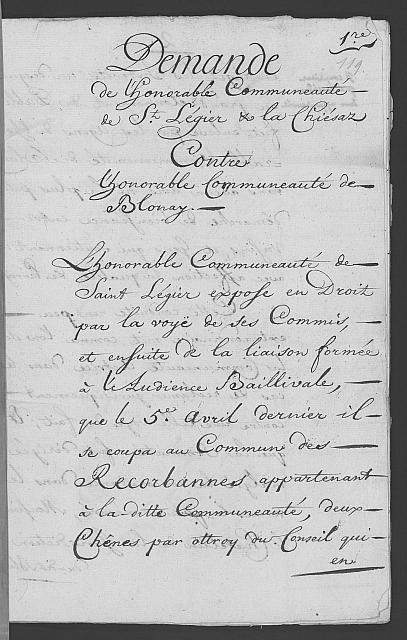 1.re
119
Demande
de l'honorable Communeauté
de St. Légier & la Chiésaz
Contre
l'honorable Communeauté de
Blonay.
L'honorable Communeauté de
Saint Légier expose en Droit
par la voÿe de ses Commis,
et ensuite de la liaison formée
à l'Audience Baillivale,
que le 5.e avril dernier il
se coupa au Commun des
Recorbannes appartenant
à la ditte Communeauté, deux
Chênes par ottroy du Conseil qui
en